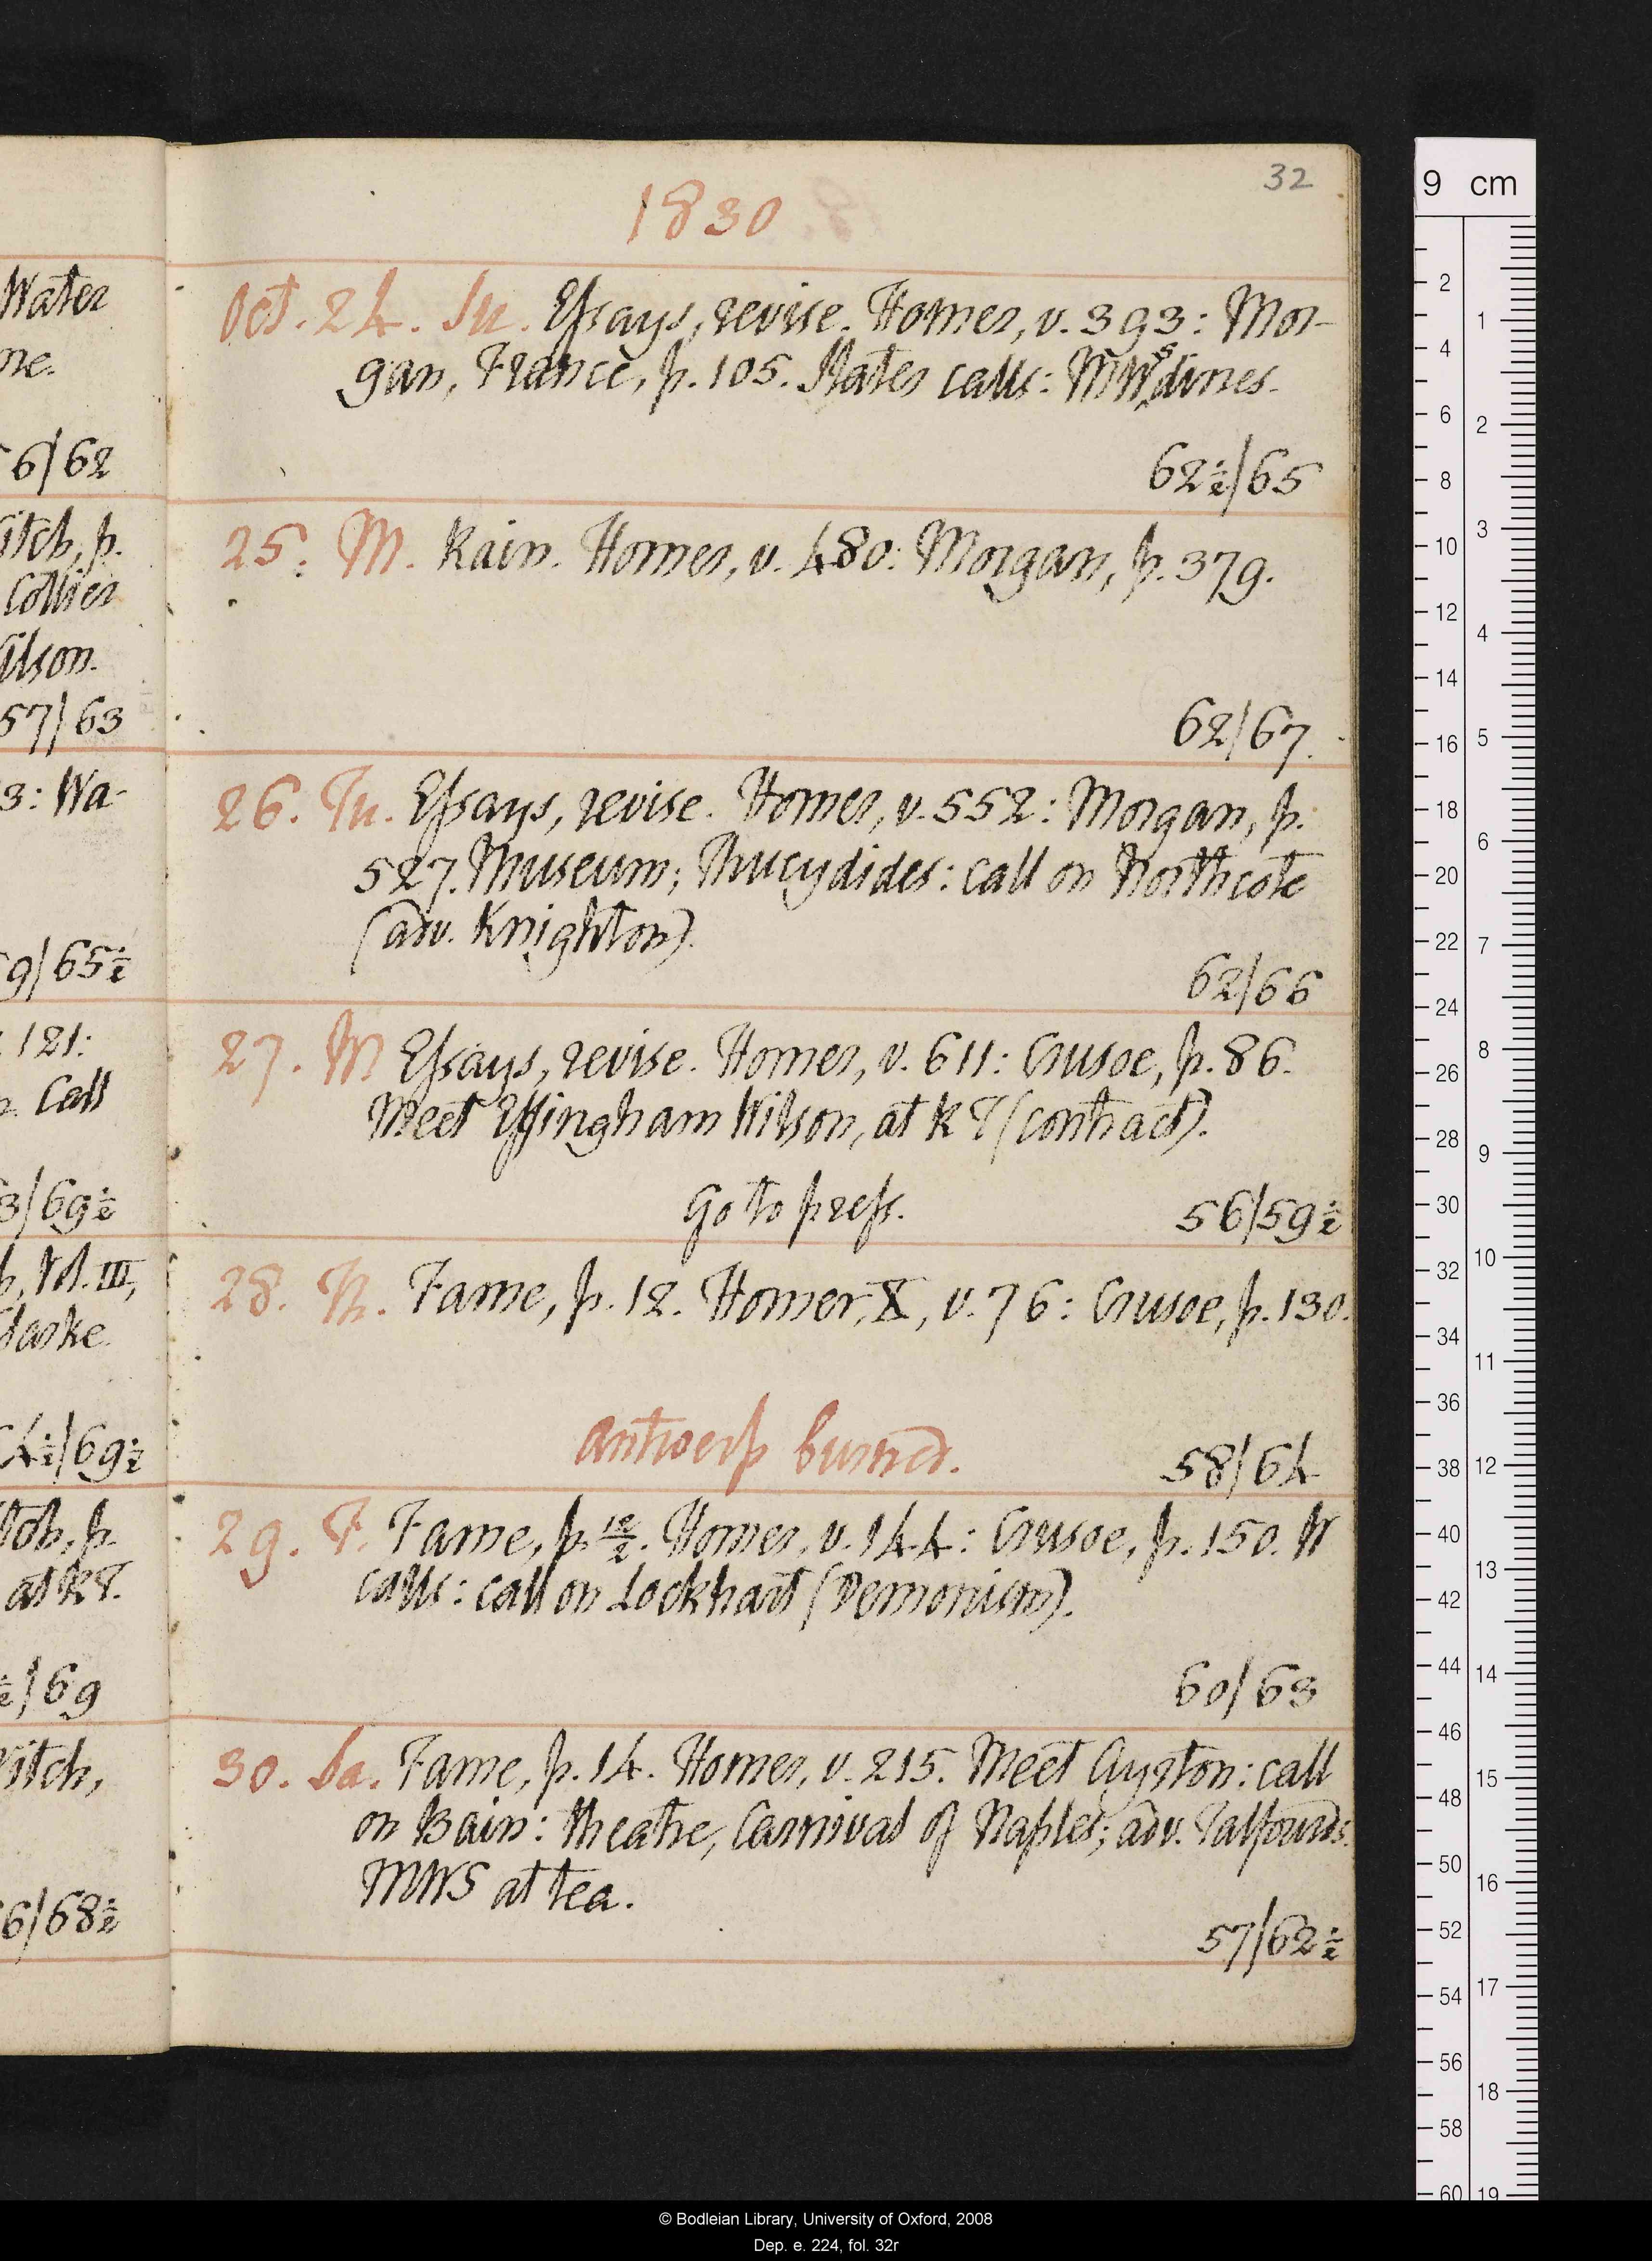 32
1830
Oct. 24. Su. Essays, revise. Homer, v. 393: Mor-
gan, France, p. 105. Slater calls: MWS dines.
62½/65
25. M. Rain. Homer, v. 480: Morgan, p. 379.
62/67.
26. Tu. Essays, revise. Homer, v. 552: Morgan, p.
527. Museum; Thucydides: call on Northcote
(adv. Knighton).
62/66
27. W Essays, revise. Homer, v. 611: Crusoe, p. 86.
Meet Effingham Wilson, at RT (contract).
Go to press.
56/59½
28. Th. Fame, p. 12. Homer, X, v. 76: Crusoe, p. 130.
Antwerp burned.
58/64
29. F. Fame, p. 12/2. Homer, v. 144: Crusoe, p. 150. W
calls: call on Lockhart (Demonism).
60/63
30. Sa. Fame, p. 14. Homer, v. 215. Meet Ayrton: call
on Bain: theatre, Carnival of Naples; adv. Talfourds.
MWS at tea.
57/62½
Water
ne.
6/62
itch, p.
Collier
ilson.
57/63
3: Wa-
9/65½
121:
Call
3/69½
Vol. III,
4½/69½
at RT.
½/69
itch,
6/68½
9 cm
2
4
6
8
10
12
14
16
18
20
22
24
26
28
30
32
34
36
38
40
42
44
46
48
50
52
54
56
58
60
1
2
3
4
5
6
7
8
9
10
11
12
13
14
15
16
17
18
19
© Bodleian Library, University of Oxford, 2008
Dep. e. 224, fol. 32r